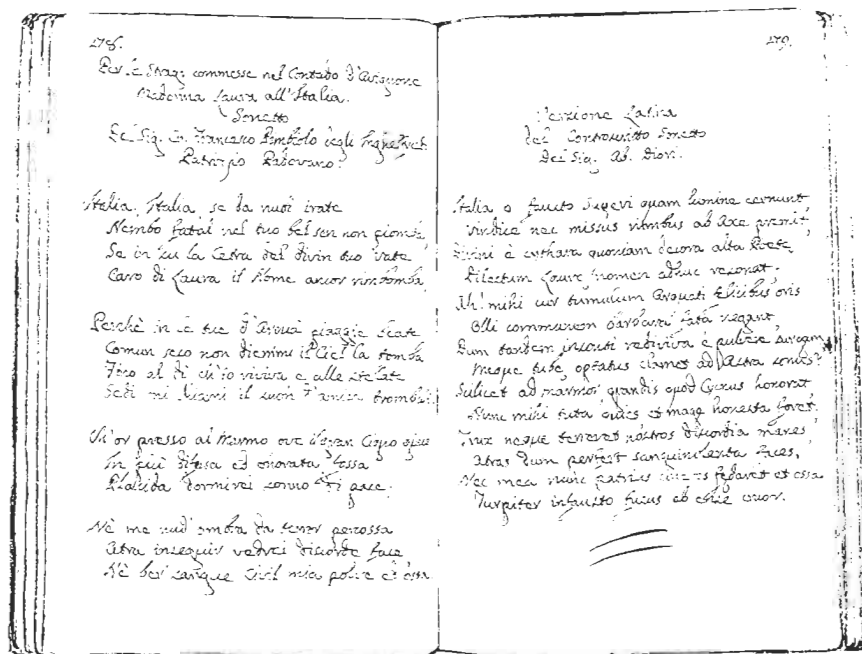 278.
Per le Stragi commesse nel Contado d'Avignone
Madonna Laura all'Italia.
Sonetto
Del Sig. Co. Francesco
Patrizio Padovano.
Italia, Italia, se da nubi irate
Nembo fatal nel tuo bel sen non piomba,
Se in la Cetra del divin tuo Vate
Caro di Laura il Nome ancor rimbomba,
Perchè in le tue d'Arquà piaggie beate
Comun seco non diemmi il Ciel la tomba
Fino al dì ch'io riviva e alle
mi chiami il suon tromba?
Ch'or presso al Marmo ove il gran Cigno
In più difesa ed onorata fossa
Placida dormirei sonno di pace.
Nè me nud'ombra da terror percossa
Atra inseguir vedrei discorde face
Nè ber sangue Civil mia polve ed ossa
279.
Versione Latina
del Controscritto Sonetto
Del Sig. Ab. Diori.
Italia o fausto Superi quam lumine cernunt
Vindice nec missus nimbus ab Axe premit,
Divini è cythara quoniam decora alta Poetę
Dilectum Laurę nomen adhuc resonat.
Ah! mihi cur tumulum Arquati felicibus oris
Olli communem fata negant,
Dum tandem rediviva è pulvere surgam
Meque tubę optatus clamet ad Astra sonus?
Scilicet ad marmor grandis quod Cycnus honorat
Nunc mihi tuta quies et magę honesta foret.
neque terreret nostros discordia manes
Atras dum perfert sanguinolenta faces,
Nec mea nunc patrius fędaret et ossa
Turpiter infausto fusus ab cruor.